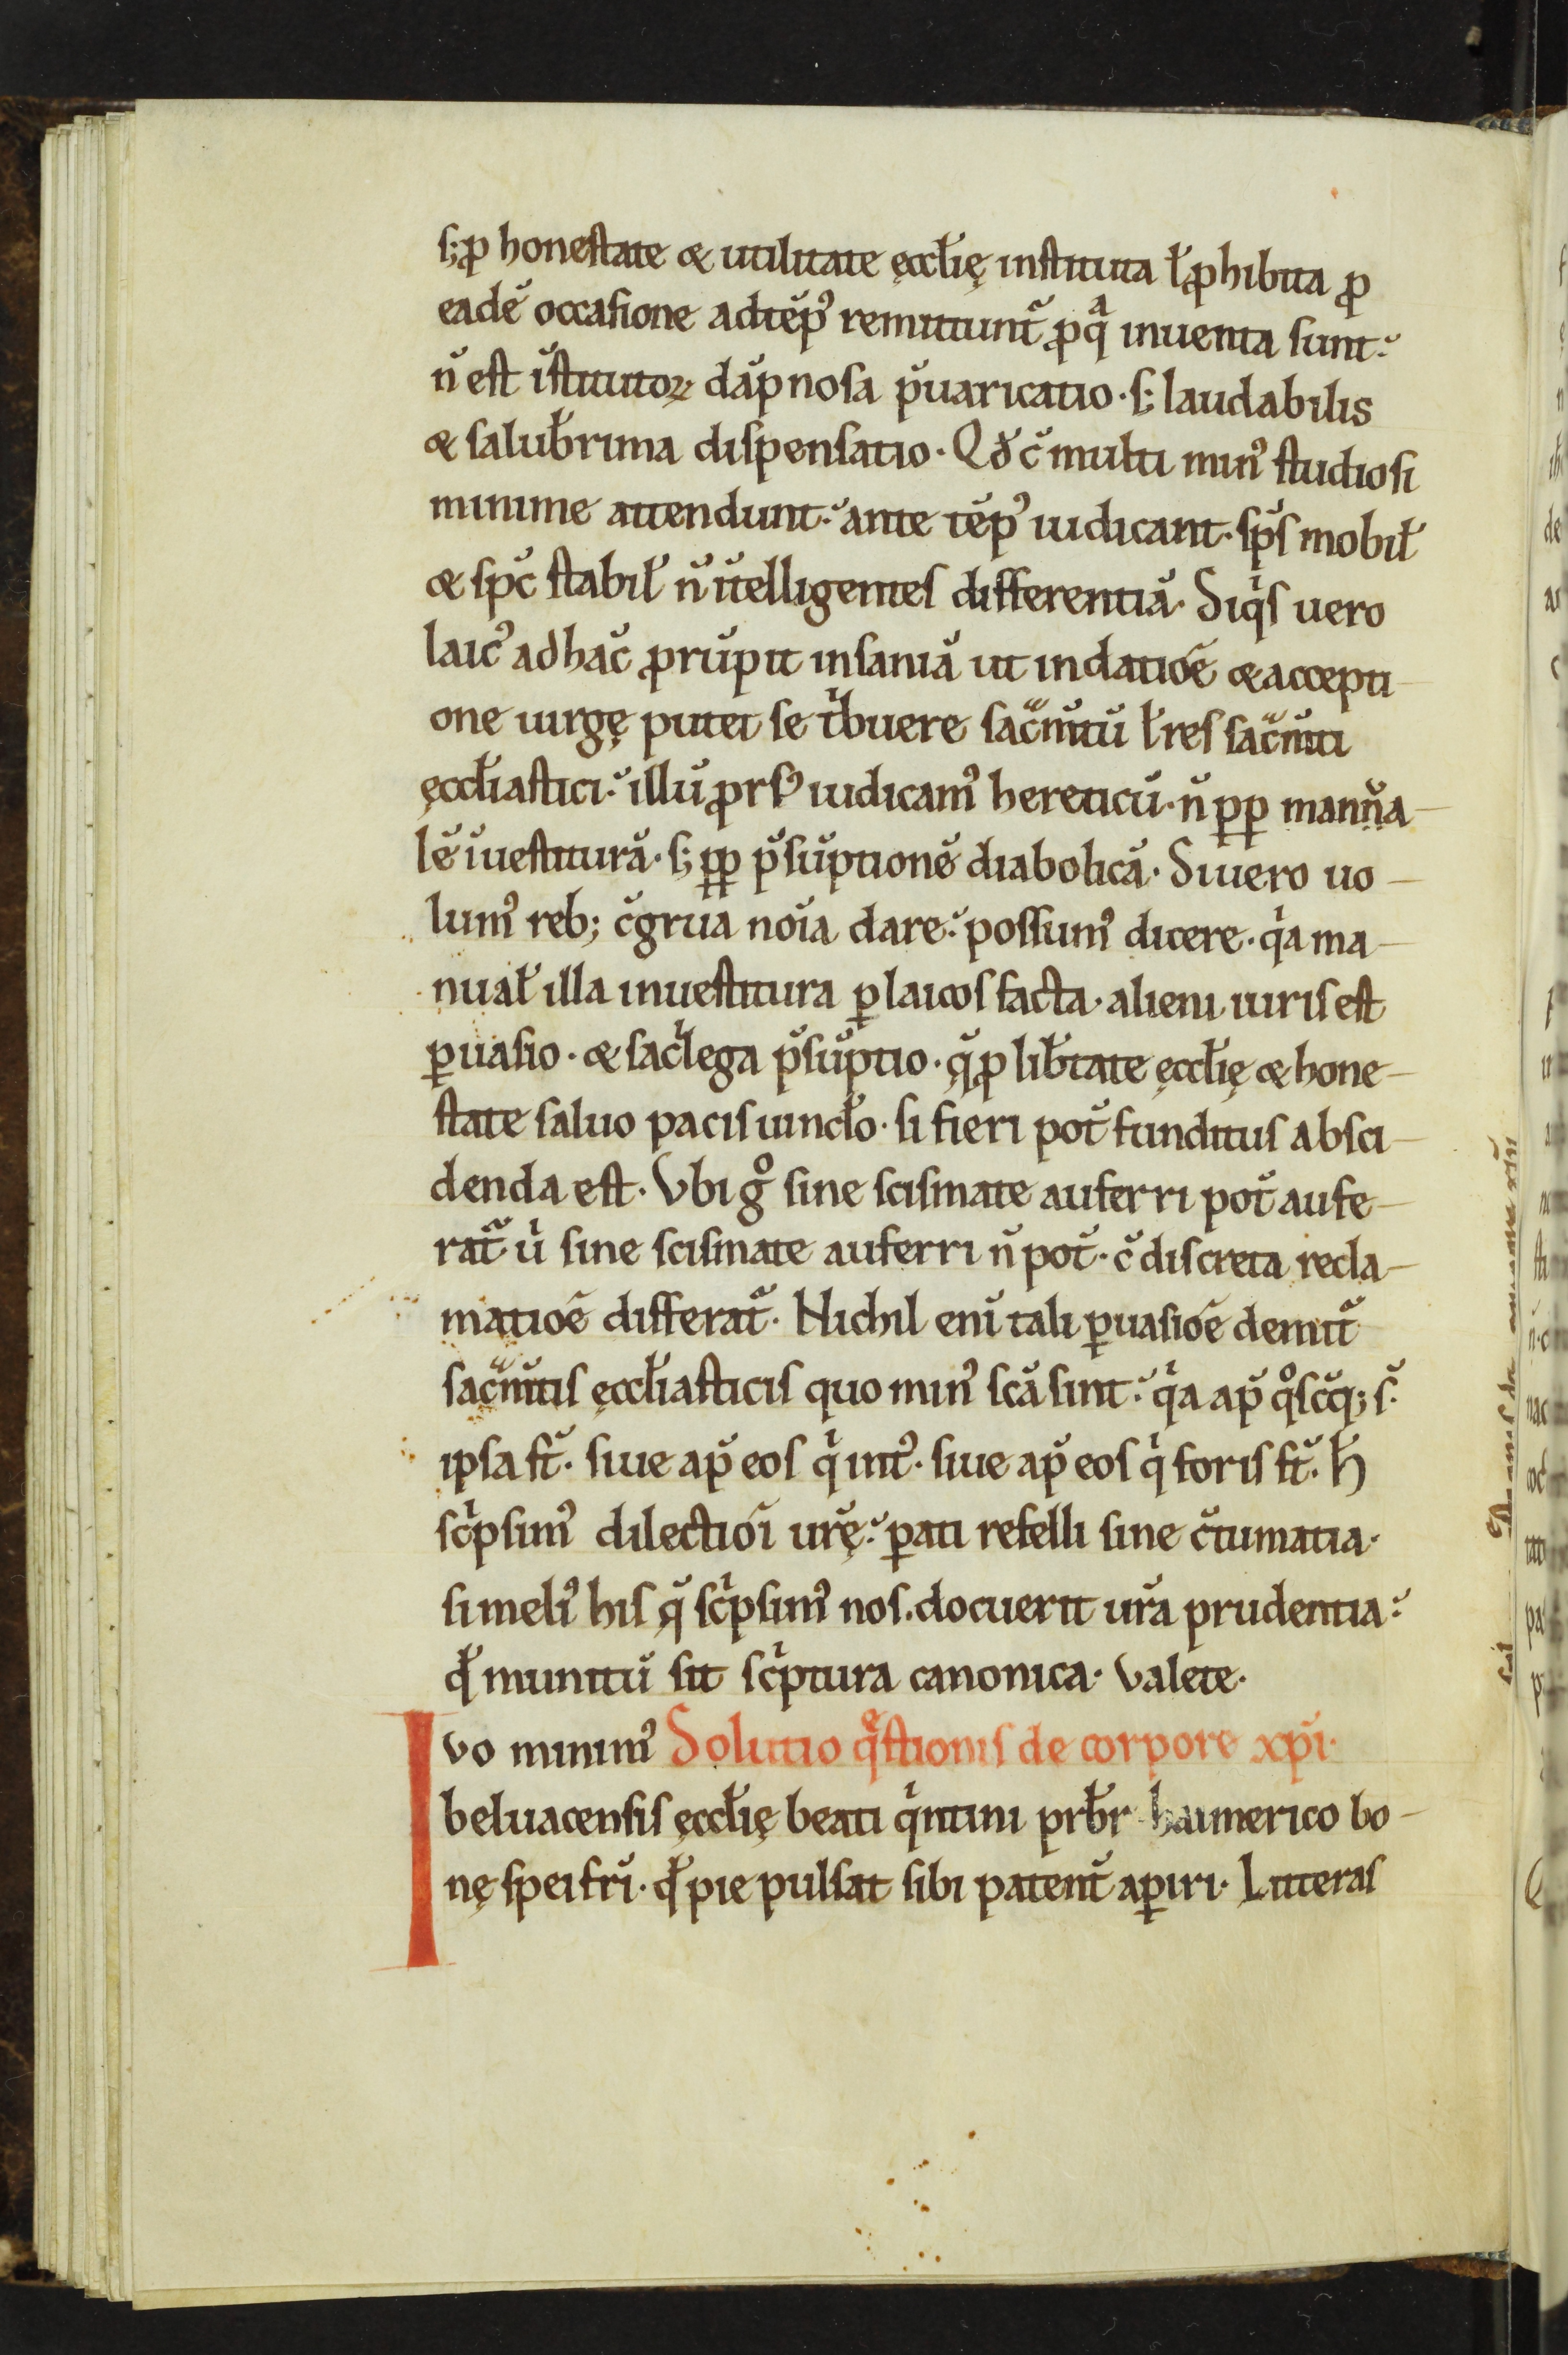 s; ꝓ honestate & utilitate ęccłię instituta ł ꝓhibita ꝓ
eadē occasione adtēpꝰ remittunt᷑ ꝓ qͣ inuenta sunt.
n̄ est īstitutoꝝ dāpnosa p̄uaricatio. s; laudabilis
& salub̄rima dispensatio. Qd̄ c̄ multi minꝰ studiosi
minime attendunt. ante tēpꝰ iudicant. sp̄s mobił
& sp̄c stabił n̄ ītelligentes differentiā. Siqͥs uero
laicꝰ ad hāc ꝓrūpit insaniā ut in datiōe & accepti
one uirgę putet se tͥbuere sac̄mtū ł res sac̄mti
ęccłiastici. illū ꝓrsꝰ iudicamꝰ hereticū. n̄ ꝓꝑ mannua
lē īuestiturā. s; ꝓꝑ p̄sūptionē diabolicā. Si uero uo
lumꝰ reb; c̄grua noīa dare. possumꝰ dicere. qͥa ma
nuał illa inuestitura ꝑ laicos facta. alieni iuris est
ꝑuasio. & sacͥlega p̄sūptio. q̨̄ ꝓ lib̄tate ęccłię & hone
state saluo pacis uincło. si fieri pot̄ funditus absci
denda est. Vbi gͦ sine scismate auferri pot̄ aufe
rat᷑. uͥ sine scismate auferri n̄ pot̄. c̄ discreta recla
matiōe differat᷑. Nichil enī tali ꝑuasiōe demit᷑
sac̄mtis ęccłiasticis quo minꝰ scā sint. qͥa ap̄ qͦscūq; s.
ipsa st̄. siue ap̄ eos qͥ intꝰ. siue ap̄ eos qͥ foris st̄. h̄
scͥpsimꝰ dilectiōi ur̄ę. ꝑati refelli sine c̄tumatia.
si meliꝰ his q̨̄ scͥpsimꝰ nos. docuerit ur̄a prudentia.
qd̄ munitū sit scͥptura canonica. Valete.
Ivo minimꝰ Solutio qͤstionis de corpore xp̄i.
beluacensis ęccłię beati qͥntini prb̄r haimerico bo
nę spei fr̄i. qd̄ pie pulsat sibi patent᷑ aꝑiri. Litteras